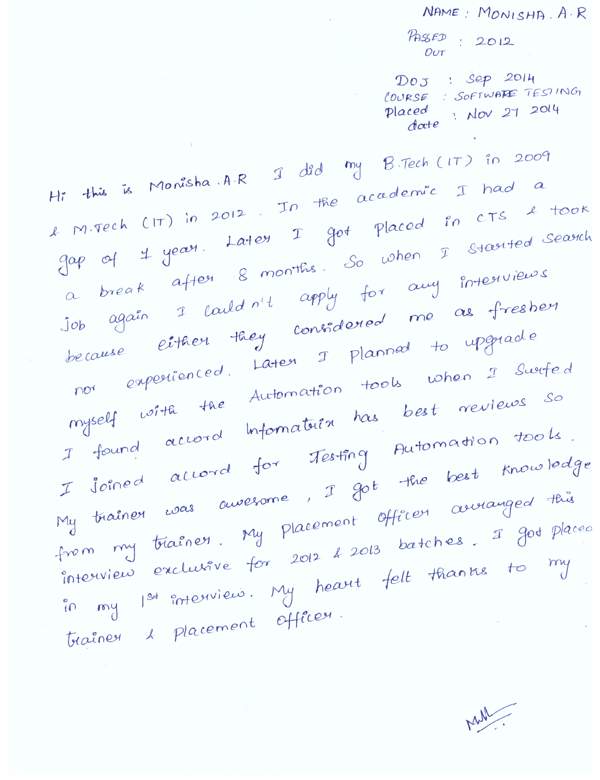 NAME : MONISHA . A . R
PASSED OUT : 2012
DOJ : Sep 2014
COURSE : SOFTWARE TESTING
Placed date : Nov 27 2014
Hi this is Monisha .A.R I did my B.Tech (IT) in 2009
& M.Tech (IT) in 2012 . In the academic I had a
gap of 1 year. Later I got placed in CTS & took
a break after 8 months. So when I started search
job again I couldn't apply for any interviews
because either they considered me as fresher
nor experienced. Later I planned to upgrade
myself with the Automation tools when I Surfed
I found accord Infomatrix has best reviews so
I joined accord for Testing Automation tools .
My trainer was awesome , I got the best knowledge
from my trainer. My Placement Officer arranged this
interview exclusive for 2012 & 2013 batches . I got placed
in my 1st interview. My heart felt thanks to my
trainer & placement Officer .